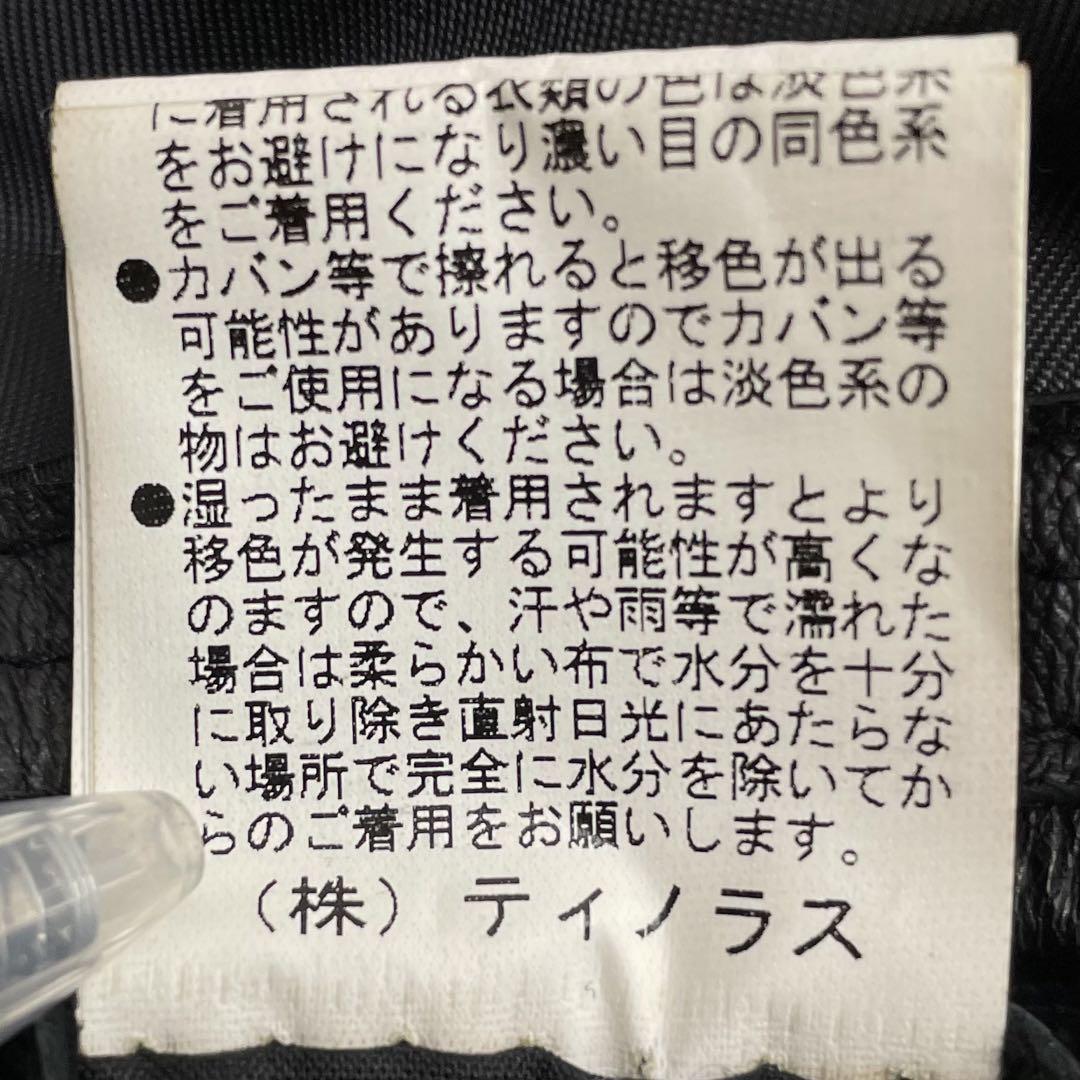 に着用される衣類の色は淡色系
をお避けになり濃い目の同色系
をご着用ください。
●カバン等で擦れると移色が出る
可能性がありますのでカバン等
をご使用になる場合は淡色系の
物はお避けください。
●湿ったまま着用されますとより
移色が発生する可能性が高くな
のますので、汗や雨等で濡れた
場合は柔らかい布で水分を十分
に取り除き直射日光にあたらな
い場所で完全に水分を除いてか
らのご着用をお願いします。
（株）ティノラス